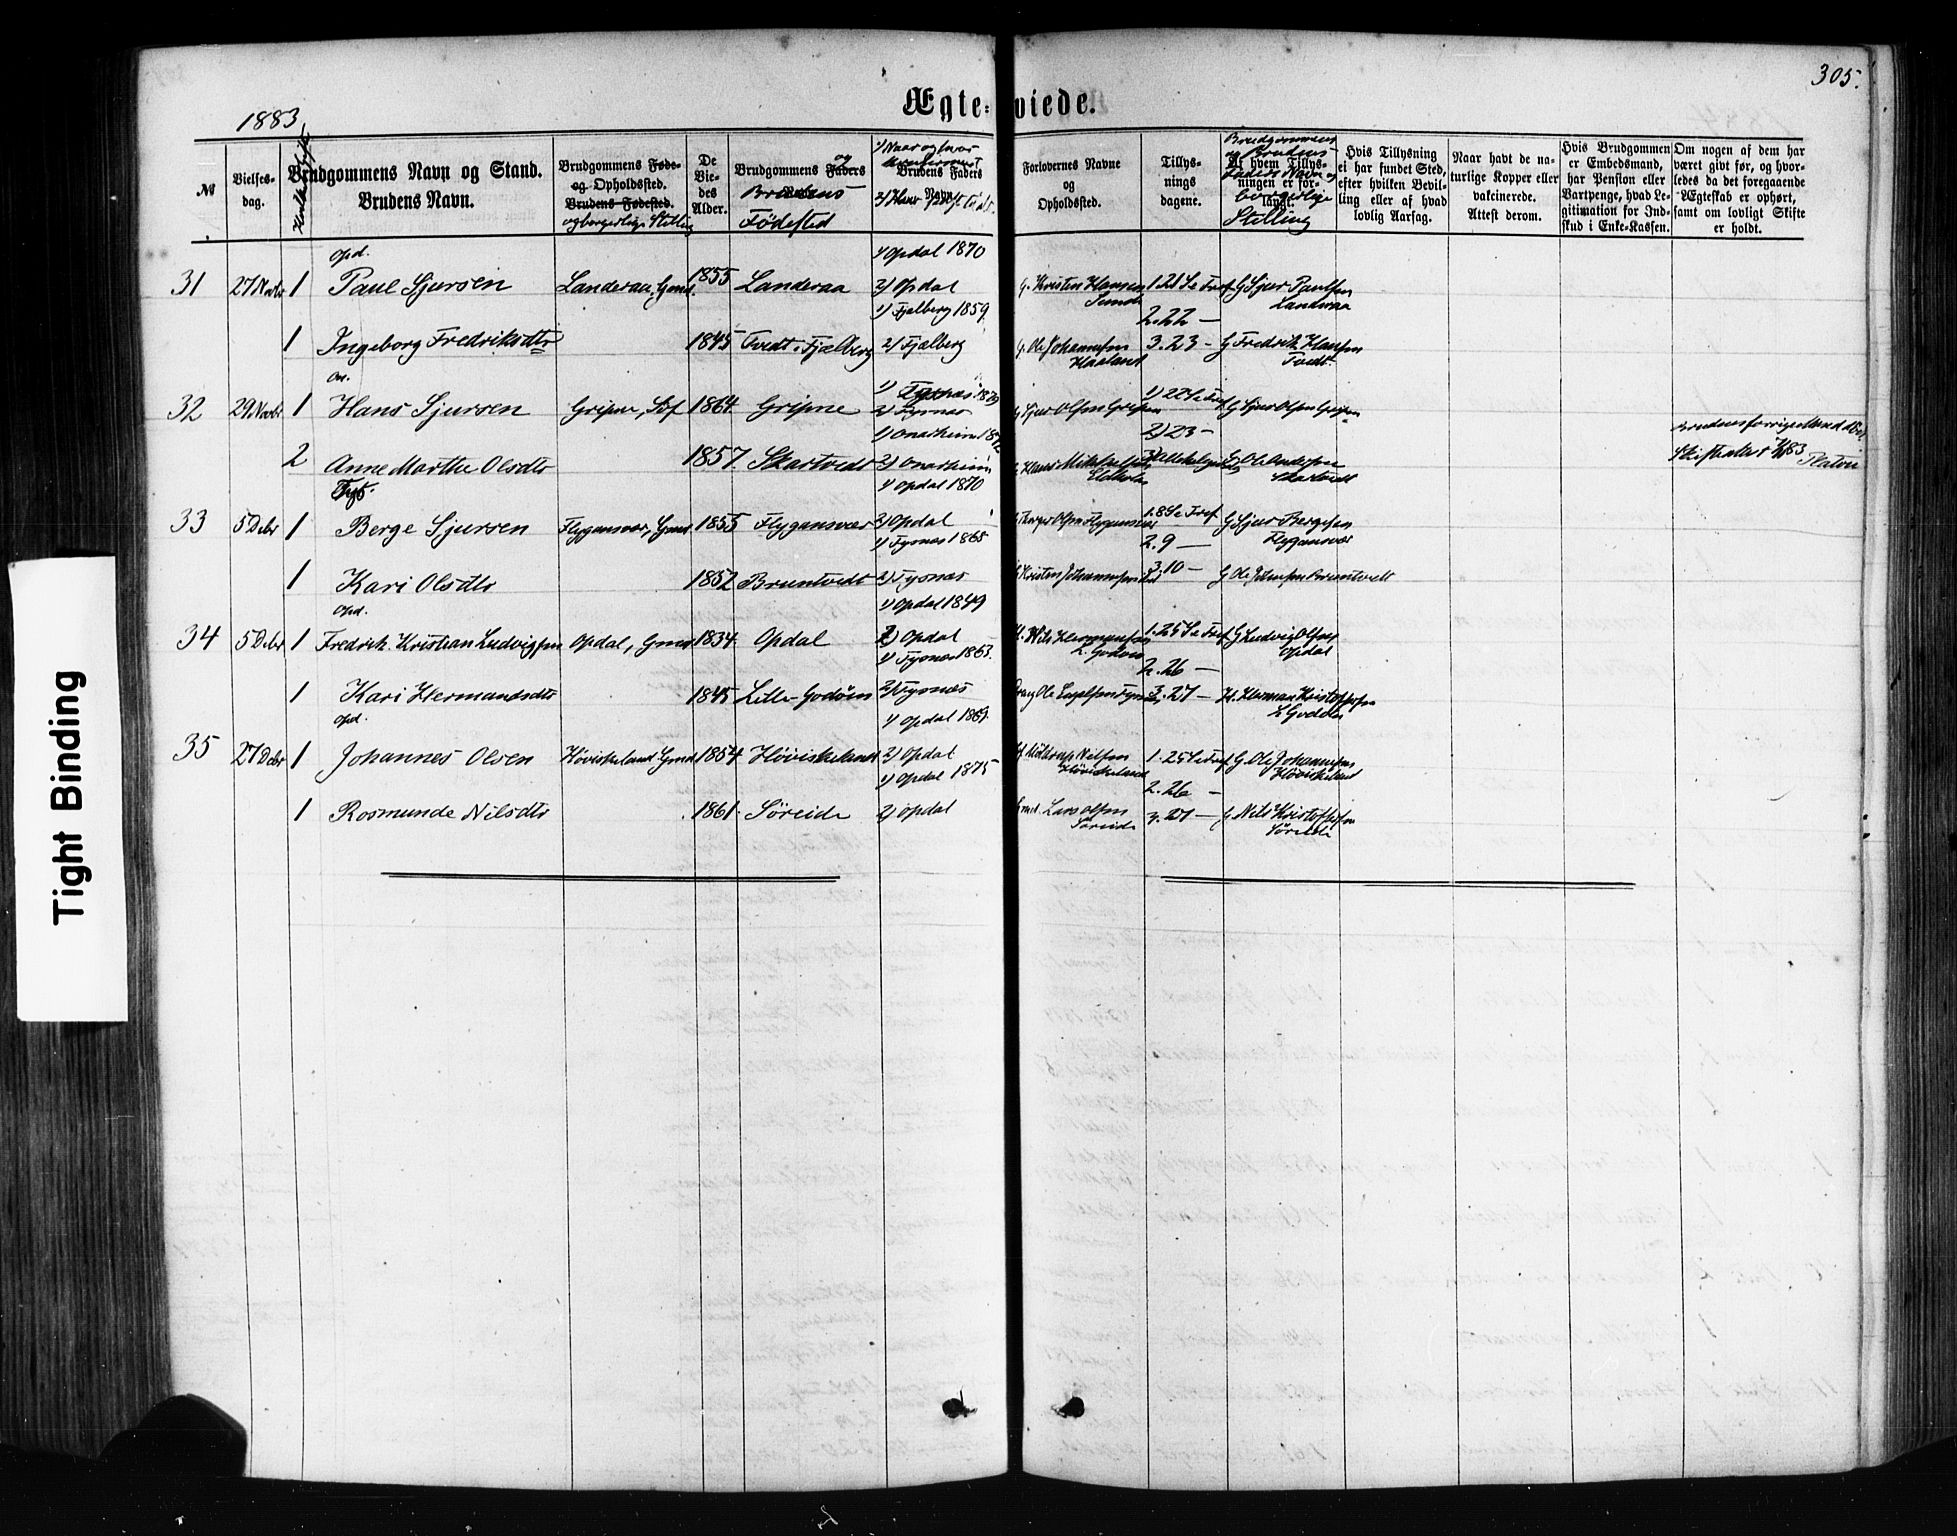 305.
Ægte-viede.
1883
№
Vielses-dag.
Brudgommens Navn og Stand.
Brudens Navn.
Brudgommens Føde- og Opholdssted.
Brudens Fødested.
og borgerlige Stilling
De Viedes Alder.
Brudgommens og Faders
Brudens
Fødested
1) Naar og hvor
Brudens Faders Navn
Forlovernes Navne og Opholdssted.
Tillysningsdagene.
Brudgommens og Brudens Faders Navn og borgerlige Stilling
Af hvem Tillysningen er forlangt.
Hvis Tillysning ei har fundet Sted, efter hvilken Bevilling eller af hvad lovlig Aarsag.
Naar havt de naturlige Kopper eller vakcinerede. Attest derom.
Hvis Brudgommen er Embedsmand, har Pension eller Vartpenge, hvad Legitimation for Indskud i Enke-Kassen.
Om nogen af dem har været givt før, og hvorledes da det foregaaende Ægteskab er ophørt, samt om lovligt Skifte er holdt.
Opd. 1) Opdal 1870
31 27 Novbr 1 Paul Sjursen Landeraa, Gmd. 1855 Landeraa 2) Opdal G. Kristen Hansen Sunde 1. 21 S e Tref G Sjur Paulsen Landeraa
1) Fjælberg 1859 2. 22 —
1 Ingeborg Fredriksdtr 1845 Tvedt i Fjælberg 2) Fjælberg G. Ole Johannesen Haaland 3. 23 — G Fredrik Hansen Tvedt
On. 1) Tysnæs 1879
32 29 Novbr 1 Hans Sjursen Gripne, Søf 1864 Gripne 2) Tysnæs G Sjur Olsen Gripne 1) 22 S e Tref G Sjur Olsen Gripne
1) Onarheim 2) 23 —
2 Anne Marthe Olsdtr 1857 Skartvedt 2) Onarheim Hans Mikkelsen Eldholm G. Ole Andersen Skartvedt
Brudens forrige Mand død. Skifteattest 83
1) Opdal 1870
33 5 Debr 1 Berge Sjursen Flygansvær, Gmd 1855 Flygansvær 2) Opdal Olsen Flygansvær 1. 8 S e Tref G Sjur Bergesen Flygansvær
1) Tysnæs 1865 2. 9 —
1 Kari Olsdtr 1852 Bruntvedt 2) Tysnæs G Kristen Johannesen 3. 10 — G Ole Johnsen Bruntvedt
Opd. 1) Opdal 1849
34 5 Debr 1 Fredrik Kristian Ludvigsen Opdal, Gmd 1834 Opdal 2) Opdal H. Nils Hermansen L. Godøen 1. 25 S e Tref G Ludvig Olsen Opdal
1) Tysnæs 1863. 2. 26 —
1 Kari Hermansdtr 1845 Lille-Godøen 2) Tysnæs Ole Engelsen 3. 27 — H. Herman Kristoffersen L Godøen
Opd. 1) Opdal 1869.
35 27 Debr 1 Johannes Olsen Høviskeland Gmd 1854 Høviskeland 2) Opdal Nilsen Høviskeland 1. 25 S e Tref G. Ole Johannesen Høviskeland
1) Opdal 1875 2. 26 —
1 Rosmunde Nilsdtr 1861. Søreide 2) Opdal Gmd. Lars Olsen Søreide 3. 27 — G Nils Kristoffersen Søreide
Tight Binding